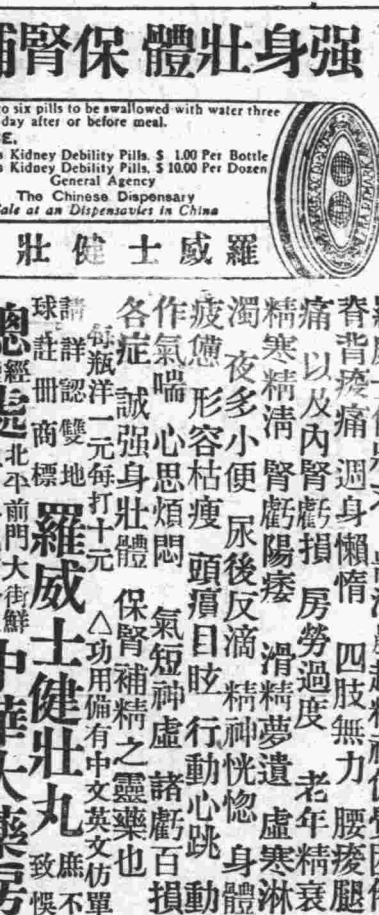 强身壯體 保腎補
o six pills to be swallowed with water three
day after or before meal.
E.
s Kidney Debility Pills. $ 1.00 Per Bottle
s Kidney Debility Pills, $ 10.00 Per Dozen
General Agency
The Chinese Dispensary
ale at an Dispensavies in China
羅威士健壯
脊背痠痛 週身懶惰 四肢無力 腰痠腿
痛 以及內腎虧損 房勞過度 老年精衰
精寒精淸 腎虧陽痿 滑精夢遺 虛寒淋
濁 夜多小便 尿後反滴 精神恍惚 身體
疲憊 形容枯瘦 頭瘨目眩 行動心跳 動
作氣喘 心思煩悶 氣短神虛 諸虧百損
各症 誠强身壯體 保腎補精之靈藥也
每瓶洋一元每打十元 △功用備有中文英文仿單
請詳認雙地
球註冊商標
羅威士健壯丸
庶不
致悞
總經處
北平前門大街鮮
中華大藥房